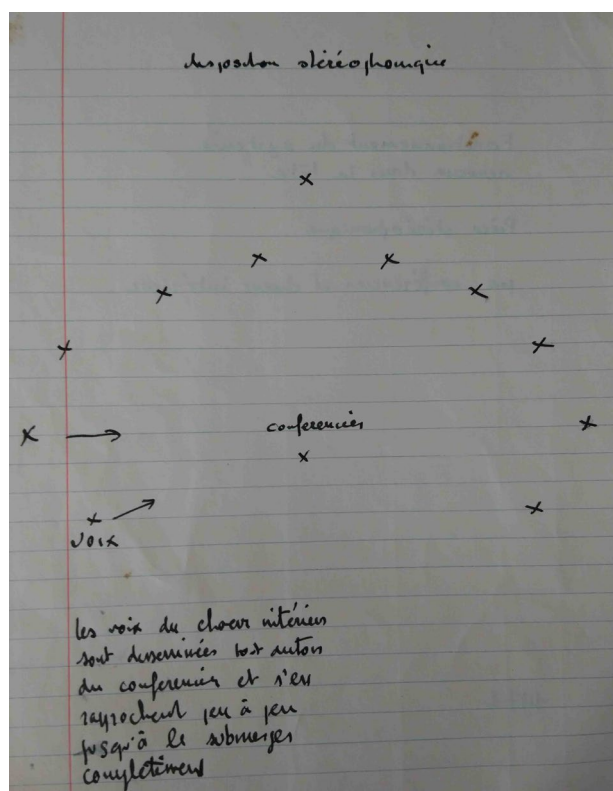 disposition stéréophonique
conferencier
voix
les voix du choeur intérieur
sont disseminées tout autour
du conferencier et s'en
rapprochent peu à peu
jusqu'à le submerger
complètement